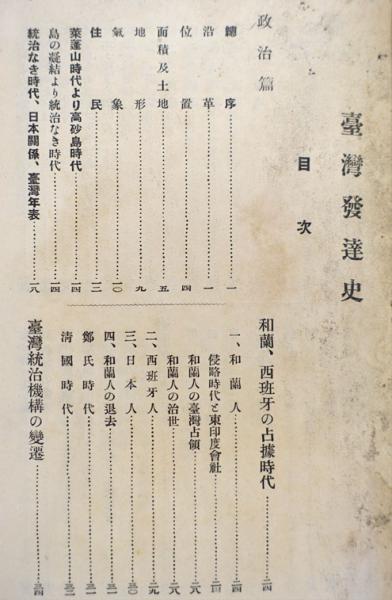 臺灣發達史
目次
政治篇
總序……一
沿革……一
位置……四
面積及土地……五
地形……九
氣象……一〇
住民……一二
蓬萊山時代より高砂島時代……一四
島の凝結より統治なき時代……一四
統治なき時代、日本關係、臺灣年表……一八
和蘭、西班牙の占據時代……二四
一、和蘭人……二四
侵略時代と東印度會社……二四
和蘭人の臺灣占領……二六
和蘭人の治世……二八
二、西班牙人……二九
三、日本人……三〇
四、和蘭人の退去……三一
鄭氏時代……三一
清國時代……三二
臺灣統治機構の變遷……三四